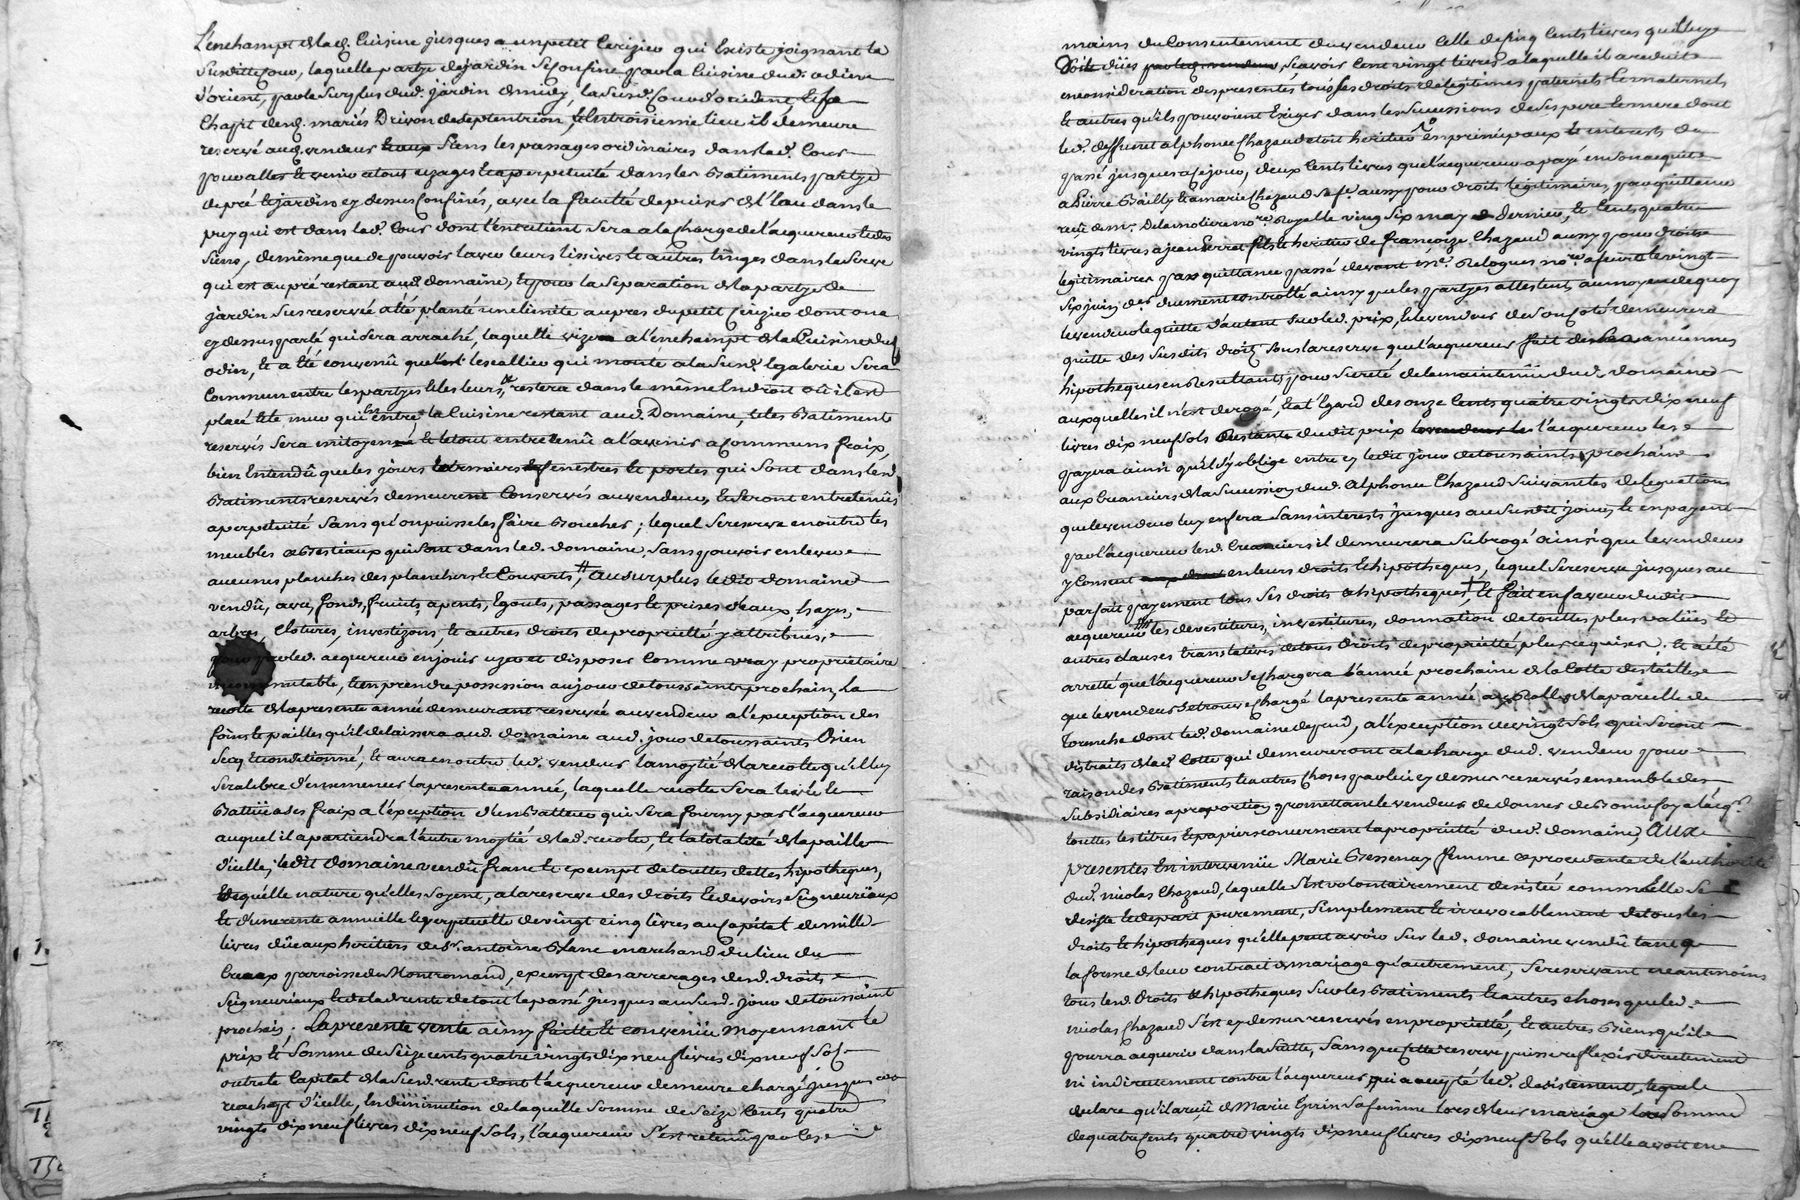 L'enchampt de lad. Cuisine jusques a un petit Cerizier qui Existe joignant la
susditte Cour, laquelle partye de jardin se Confine par la Cuisine dud. odin
d'orient, par le surplus dud. jardin de midy, la susd. Cour d'occident, et le
Chapit desd. mariés Drivon de septentrion, Et En troisieme lieu il demeure
reservé aud. vendeur siens les passages ordinaires dans lad. Cour
pour aller Et venir a tous uzages Et a perpetuité dans les Batiments partye
de pré et jardin cy dessus Confinés, avec la faculté de puiser de l'Eau dans le
puy qui est dans lad. Cour dont l'entretient sera a la charge de l'acquereur et des
siens, de même que de pouvoir laver leurs lissives Et autres linges dans la serve
qui est au pré restant aud. domaine, Et pour la separation de la partye de
jardin sus reservée a été planté une limite aupres du petit Cerizier dont on a
cy dessus parlé qui sera arraché, laquelle vize a l'enchampt de la Cuisine dud.
odin, Et a été convenû que l'escallier qui monte a la susd. galerie sera
Commun entre les partyes Et les leurs, Et restera dans le même Endroit où il est
placé Et le mur qui est entre la Cuisine restant aud. Domaine, Et les Batiment
reservés sera mitoyen Et le tout entretenû a l'avenir a Communs fraix,
bien Entendû que les jours fenestres Et portes qui sont dans lesd.
Batiments reservés demeurent Conservés au vendeur, Et seront entretenûs
a perpetuité sans qu'on puisse les faire Boucher ; lequel se reserve en outre les
meubles Et Bestiaux qui sont dans led. domaine, sans pouvoir enlever
aucunes planches des planchers Et Couverts, au surplus le dit domaine
vendû, avec fonds, fruits, apents, Egouts, passages Et prises d'eaux, hayes,
arbres, Clotures, investizons, Et autres droits de proprietté y attribués,
pour par led. acquereur en jouir uzer et disposer Comme vray proprietaire
incommutable, Et en prendre possession au jour de toussaints prochain, La
recolte de la presente année demeurant reservée au vendeur a l'exception des
foins Et pailles qu'il delaissera aud. domaine aud. jour de toussaints Bien
secq Et conditionné, Et aura en outre led. vendeur la moytié de la recolte qu'il luy
sera libre d'ensemencer la presente année, laquelle recolte sera levée Et
Battüe a ses fraix a l'exception d'un Batteur qui sera fourny par l'acquereur
auquel il apartiendra l'autre moytié de lad. recolte, Et la totalité de la paille
d'icelle, le dit domaine vendû franc Et exempt de touttes dettes hipotheques,
de quelle nature qu'elles soyent, a la reserve des droits Et devoirs seigneuriaux
Et d'une rente annuelle Et perpetuelle de vingt cinq livres au Capital de mille
livres dûe aux heritiers de Sr. antoine Blanc marchand du lieu du
Creaux parroisse de Montromand, exempt des arrerages desd. droits
seigneuriaux Et de lad. rente de tout le passé jusques au susd. jour de toussaint
prochain ; La presente vente ainsy faitte Et convenüe moyennant le
prix Et somme de seize cents quatre vingts dix neuf livres dix neuf sols
outre le Capital de la susd. rente dont l'acquereur demeure chargé jusques au
reachept d'icelle, En diminution de laquelle somme de seize Cents quatre
vingts dix neuf livres dix neuf sols, l'acquereur s'est retenû par les
mains du Consentement du vendeur Celle de cinq Cents livres qu'il luy
düe sçavoir Cent vingt livres a laquelle il a reduit
en consideration des presentes tous ses droits de legitimes paternels Et maternels
Et autres qu'ils pouvoient Exiger dans les successions de ses pere Et mere dont
led. deffunct alphonce Chazaud etoit heritier Et interests du
passé jusques a ce jour, deux Cents livres que l'acquereur a payé en son acquit
a Pierre Bailly Et a marie Chazaud sa fe. aussy pour droits legitimaires, par quittance
reçû de Me. Delamotiere nore. Royal le vingt six may dernier, Et Cents quatre
vingts livres a jean heritier de françoize Chazaud aussy pour droits
legitimaires par quittance passé devant Me. nore. a feurs le vingt
six juin der. duement controllé ainsy que les partyes attestent, au moyen de quoy
le vendeur le quitte d'autant sur led. prix, Et le vendeur de son coté demeurera
quitte des susdits droits sous la reserve que l'acquereur fait des anciennes
hipotheques en Resultants pour sureté de la maintenüe dud. domaine
auxquelles il n'est derogé, Et a l'Egard des onze Cents quatre vingts dix neuf
livres dix neuf sols Restants du dit prix l'acquereur les
payera ainsi qu'il s'y oblige entre cy Et le dit jour de toussaints prochain
aux Creanciers de la succession dud. alphonce Chazaud suivant les delegations
que le vendeur luy en fera sans interests jusques au susdit jour, Et en payant
par l'acquereur lesd. Creanciers il demeurera subrogé ainsi que le vendeur
y Consent en leurs droits Et hipotheques, lequel se reserve jusques au
parfait payement tous ses droits Et hipotheques, Et fait en faveur du dit
acquereur les devestitures, investitures, donnation de touttes plus values Et
autres clauses translatives de tous Droits de proprietté plus requises. Et a été
arretté que l'acquereur se chargera l'année prochaine de la Cotte des tailles
que le vendeur se trouve chargé la presente année au Rolle de la parcelle de
Souruche dont led. domaine depend, a l'exception de vingt sols qui seront
distraits de lad. Cotte qui demeureront a la charge dud. vendeur pour
raison des Batiments Et autres Choses par luy cy dessus reservés ensemble des
subsidiaires a proportion, promettant le vendeur de donner de Bonne foy a l'acqr.
touttes les titres Et papiers concernant la proprietté dud. domaine, Aux
presentes Est intervenüe Marie Bessenay femme Et procedante de l'authorité
dud. nicolas Chazaud, laquelle s'est volontairement desistée comme Elle se
desiste Et depart purement, simplement Et irrevocablement de tous les
droits Et hipotheques qu'elle peut avoir sur led. domaine vendû tant en
la forme de leur contract de mariage qu'autrement, se reservant neantmoins
tous lesd. droits Et hipotheques sur les Batiments Et autres choses que led.
nicolas Chazaud s'est cy dessus reservés en proprietté, Et autres Biens qu'il
pourra acquerir dans la suitte, sans que cette reserve puisse reflexir directement
ni indirectement contre l'acquereur, qui a accepté led. desistement, lequel
declare qu'il a reçû de Marie Eprin sa femme lors de leur mariage la somme
de quatre cents quatre vingts dix neuf livres dix neuf sols qu'elle avoit en